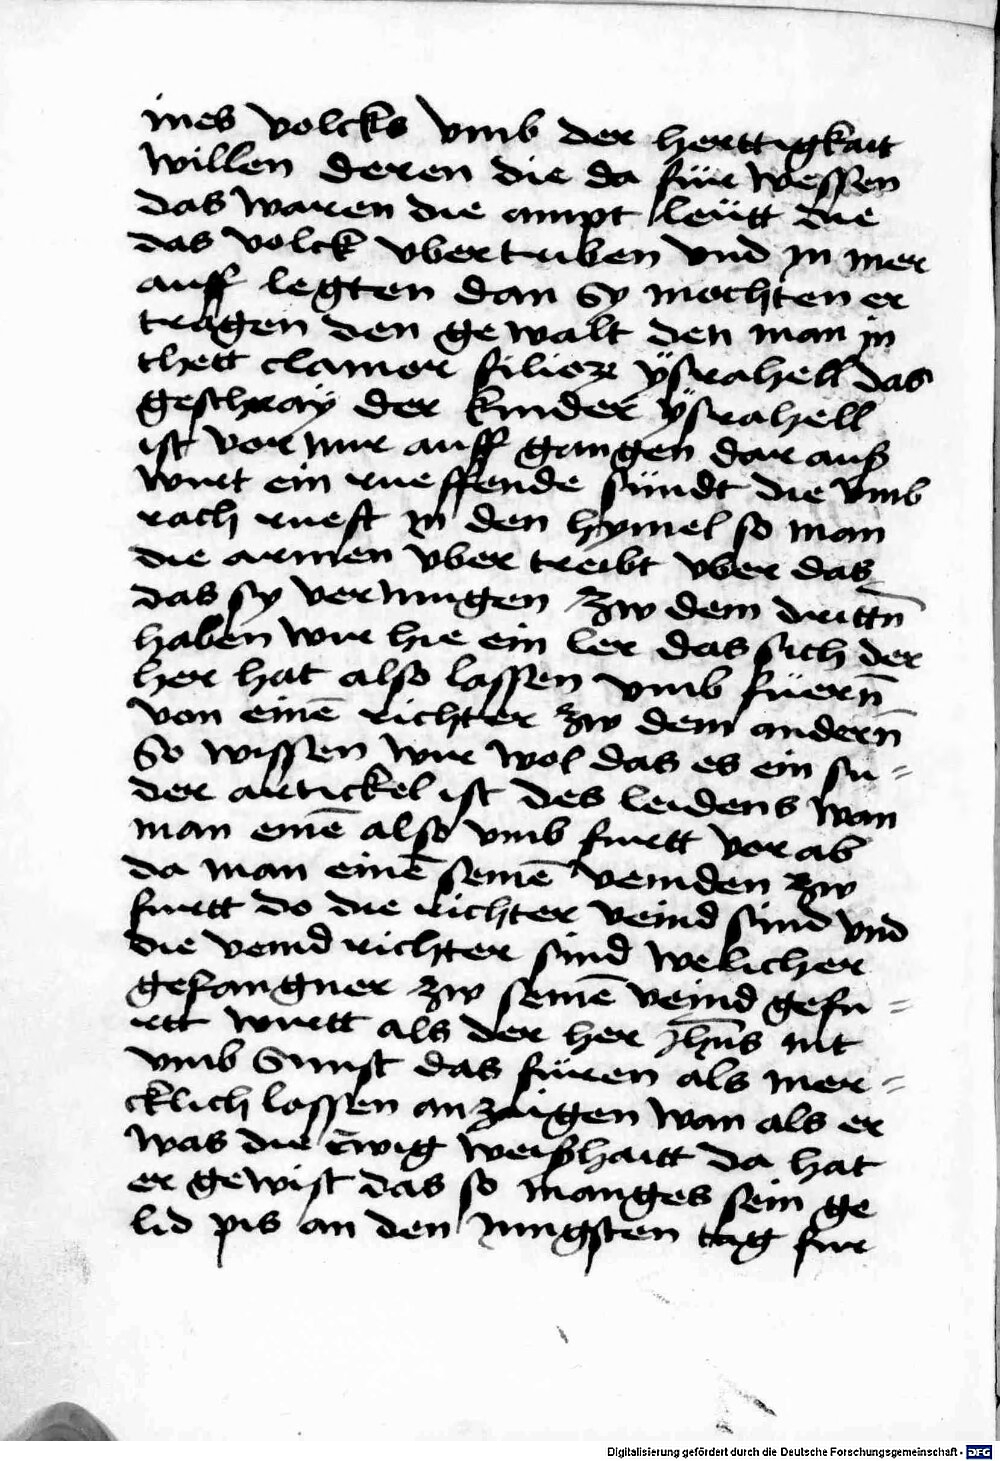 ines volcks vmb der herttigkait
willen deren die da für wessen
das waren die ampt leütt die
das volck vbertriben vnd in mer
auff legten dan sy mochten er
tragen den gewalt den man in
thett clamor filioꝝ ÿsrahell das
geschray der kinder ÿsrahell
ist vor mir auff gangen dar auß
wirt ein rueffende sündt die vmb
rach rueft in den hymel so man
die armen vber treibt vber das
das sy vermugen zw dem drittn̄
haben wir hie ein ler das sich der
her hat also lassen vmb füern̄
von einē richter zw dem andern̄
So wissen wir wol das es ein su-
der artickel ist des leidens wan
man einē also vmb furtt vor ab
da man einē seinē veinden zw
furtt do die richter veind sind vnd
die veind richter sind welicher
gefangner zw seinē veind gefu-
rtt wirtt als der her Jhūs nit
vmb sunst das füren als mer-
cklich lassen anzaigen wan als er
was die ewig weißhaitt da hat
er gewist das so manges sein ge
lid pis an den iungsten tag fur
Digitalisierung gefördert durch die Deutsche Forschungsgemeinschaft - DFG